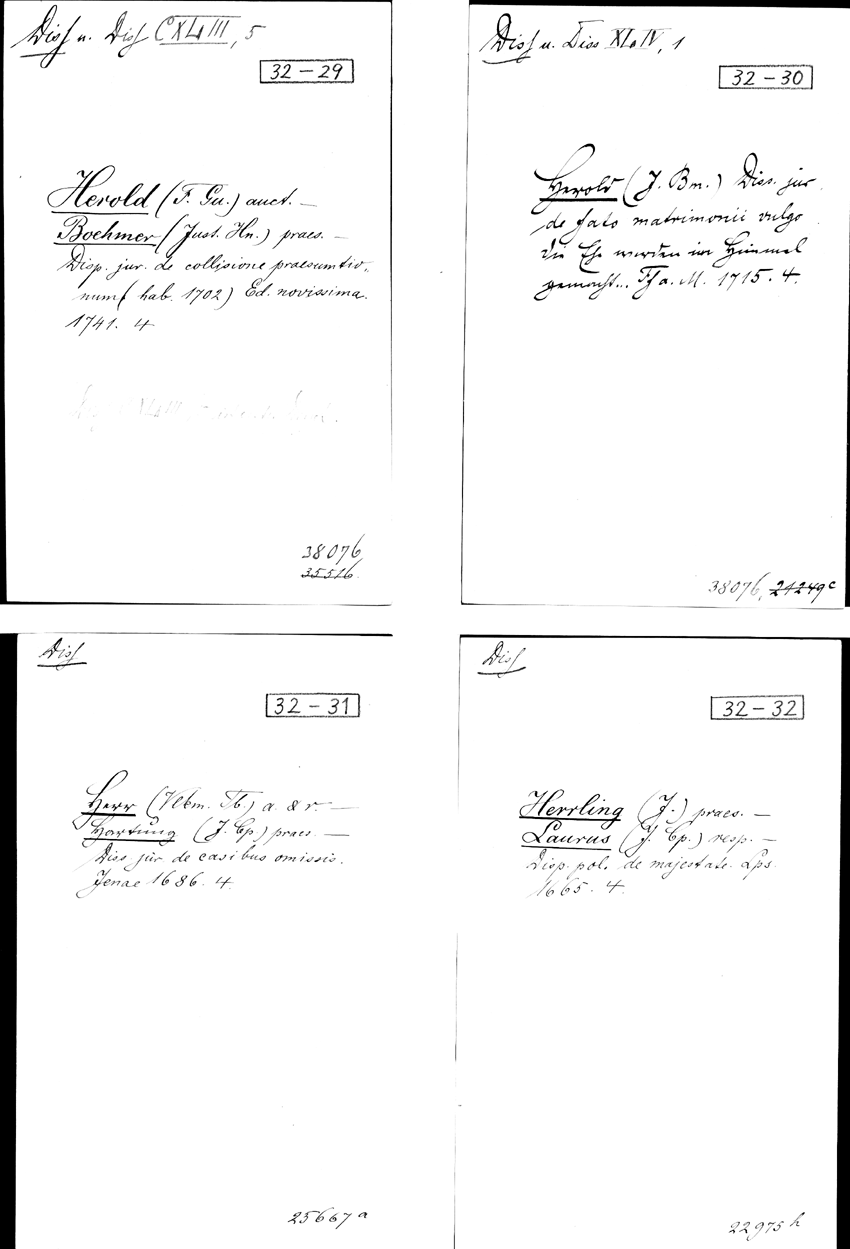 Diss u. Diss CXLIII, 5
32 – 29
Herold (F. Gu.) auct. —
Boehmer (Just. Hn.) praes. —
Disp. jur. de collisione praesumtio-
num (hab. 1702) Ed. novissima.
1741. 4
38076
35516
Diss u. Diss XLIV, 1
32 – 30
Herold (J. Bm.) Diss. jur.
de fato matrimonii vulgo
die Ehe werden im Himmel
gemacht... Ff a. M. 1715. 4.
38076, 21249c
Diss
32 – 31
Herr (Vlkm. Tb.) a. & r. —
Hartung (J. Cp.) praes. —
Diss. jur. de casibus omissis.
Jenae 1686. 4.
25667 a
Diss
32 – 32
Herrling (J.) praes. —
Laurus (J. Cp.) resp. —
Disp. pol. de majestate. Lps.
1665. 4.
22975 h